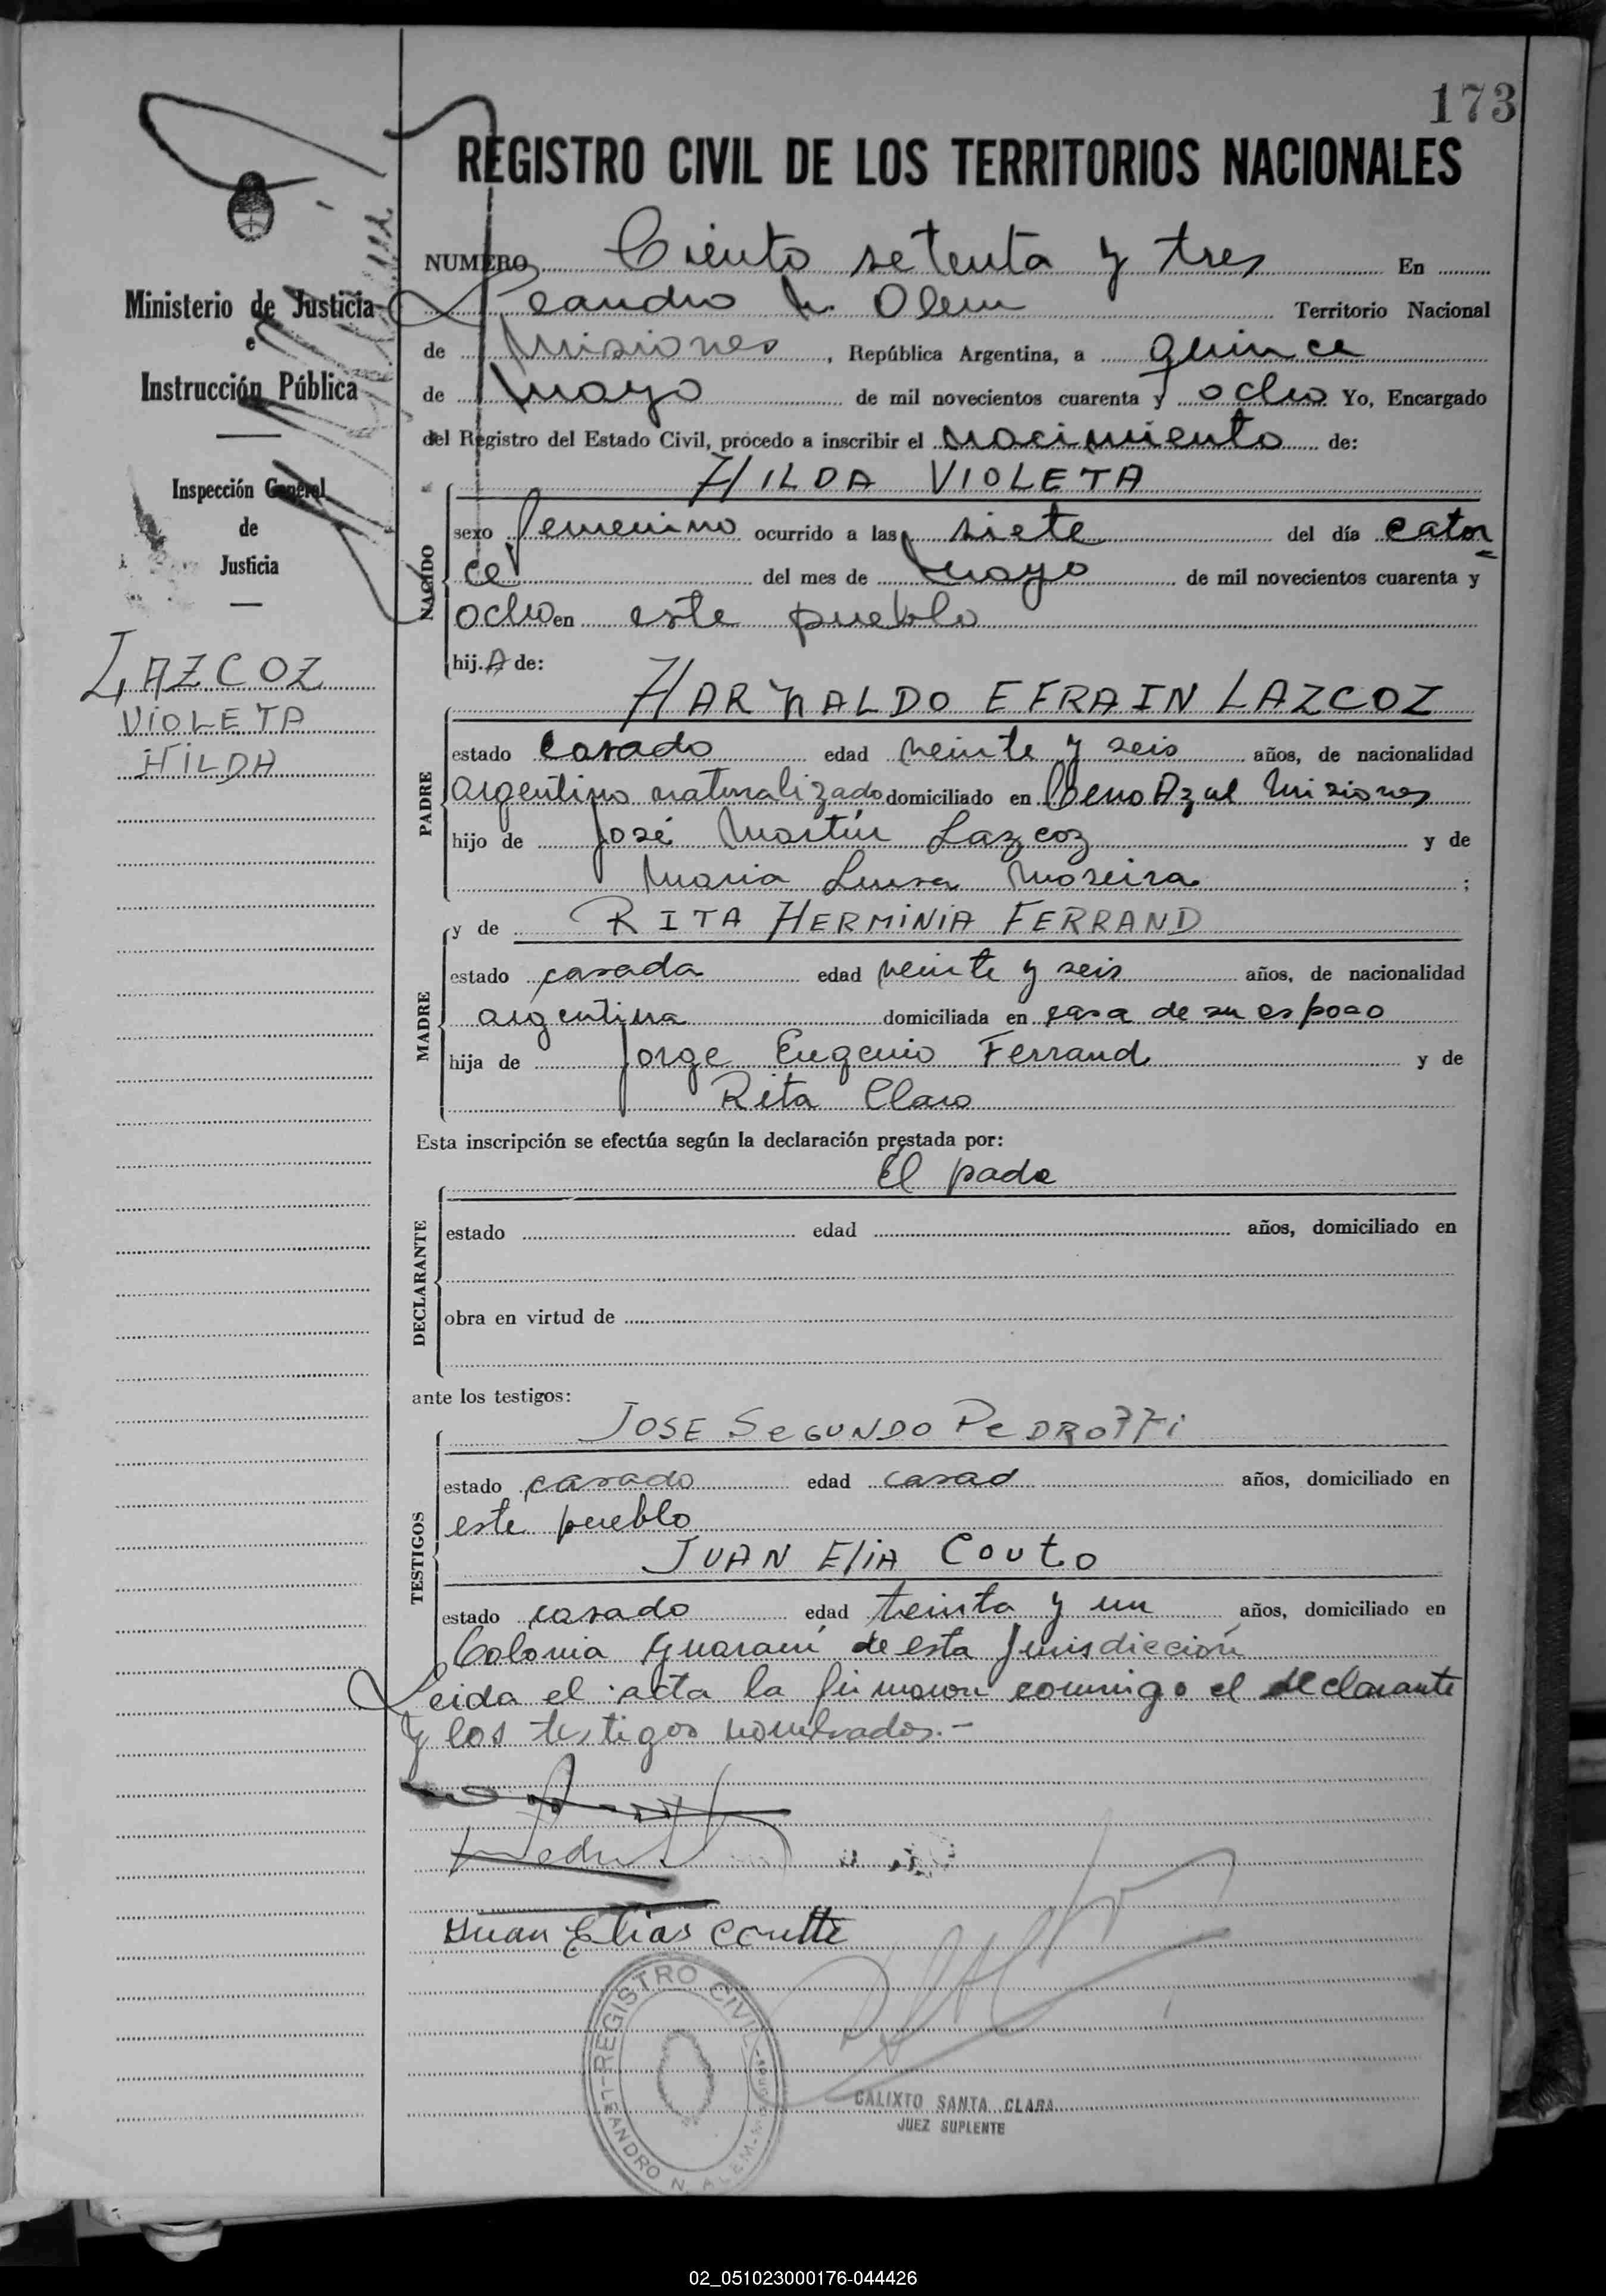 173
REGISTRO CIVIL DE LOS TERRITORIOS NACIONALES
Ministerio de Justicia
e
Instrucción Pública
Inspección General
de
Justicia
LAZCOZ
VIOLETA
HILDA
NUMERO Ciento setenta y tres En
Leandro N. Alem Territorio Nacional
de Misiones, República Argentina, a quince
de mayo de mil novecientos cuarenta y ocho Yo, Encargado
del Registro del Estado Civil, procedo a inscribir el nacimiento de:
HILDA VIOLETA
NACIDO
sexo femenino ocurrido a las siete del día cator
ce del mes de mayo de mil novecientos cuarenta y
ocho en este pueblo
hij.A de:
HARNALDO EFRAIN LAZCOZ
PADRE
estado casado edad veinte y seis años, de nacionalidad
argentino naturalizado domiciliado en Azul Misiones
hijo de José Martín Lazcoz y de
Maria Luisa Moreira ;
y de RITA HERMINIA FERRAND
MADRE
estado casada edad veinte y seis años, de nacionalidad
argentina domiciliada en casa de su esposo
hija de Jorge Eugenio Ferrand y de
Rita Claro
Esta inscripción se efectúa según la declaración prestada por:
El padre
DECLARANTE
estado edad años, domiciliado en
obra en virtud de
ante los testigos:
JOSE SEGUNDO PEDROTTI
TESTIGOS
estado casado edad casad años, domiciliado en
este pueblo
JUAN ELIA COUTO
estado casado edad treinta y un años, domiciliado en
Colonia Guaraní de esta Jurisdicción
Leida el acta la firmaron conmigo el declarante
y los testigos nombrados.-
Juan Elias Coutto
REGISTRO CIVIL
LEANDRO N. ALEM
CALIXTO SANTA CLARA
JUEZ SUPLENTE
02_051023000176-044426